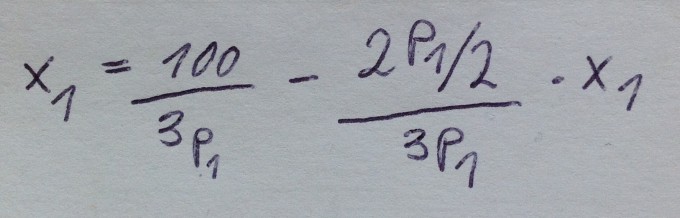 x₁ = 100/3p₁ - 2P₁/2/3P₁ · x₁